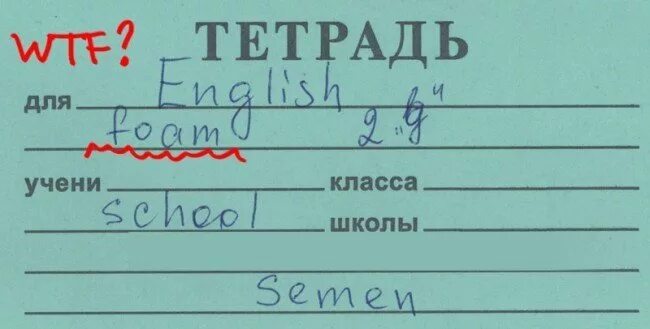 WTF? ТЕТРАДЬ
для English
foam 2 „g"
учени класса
school школы
Semen